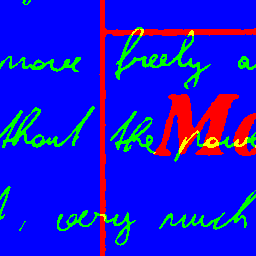 move freely a
thout the powe
t, very much